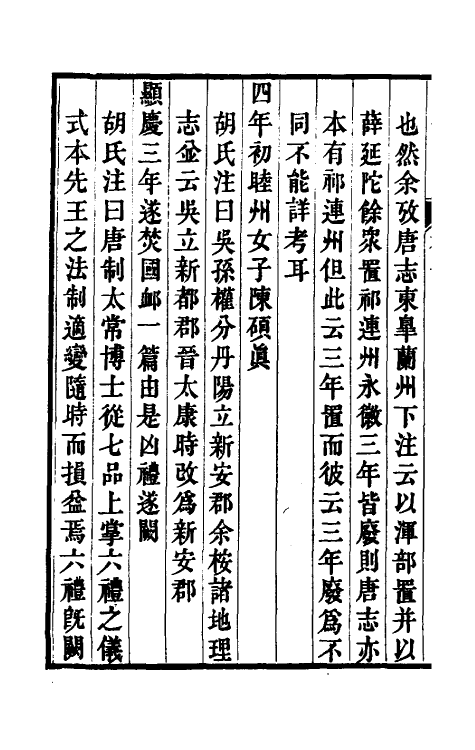 也然余攷唐志東臯蘭州下注云以渾部置并以
薛延陀餘衆置祁連州永徽三年皆廢則唐志亦
本有祁連州但此云三年置而彼云三年廢爲不
同不能詳考耳
四年初睦州女子陳碩眞
胡氏注曰吳孫權分丹陽立新安郡余桉諸地理
志並云吳立新都郡晉太康時改爲新安郡
顯慶三年遂焚國䘏一篇由是凶禮遂闕
胡氏注曰唐制太常博士從七品上掌六禮之儀
式本先王之法制適變隨時而損益焉六禮旣闕